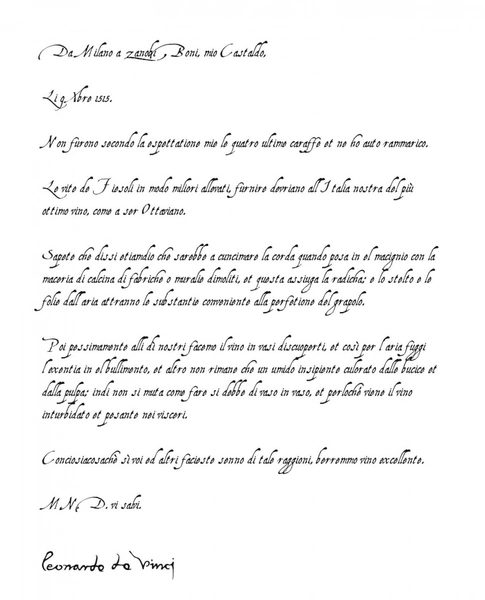 Da Milano a zanobi Boni, mio Castaldo,
Li 9 Xbre 1515.
Non furono secondo la espettatione mie le quatro ultime caraffe et ne ho auto rammarico.
Le vite de Fiesoli in modo miliori allevati, furnire devriano all'Italia nostra del più
ottimo vino, come a ser Ottaviano.
Sapete che dissi etiamdio che sarebbe a cuncimare la corda quando posa in el macignio con la
maceria di calcina di fabriche o muralie dimoliti, et questa assiuga la radicha; e lo stelto e le
folie dall'aria attranno le substantie conveniente alla perfetione del grapolo.
Poi pessimamente alli dì nostri facemo il vino in vasi discuoperti, et così per l'aria fuggi
l'exentia in el bullimento, et altro non rimane che un umido insipiente culorato dalle bucice et
dalla pulpa; indi non si muta come fare si debbe di vaso in vaso, et perlochè viene il vino
inturbidato et pesante nei visceri.
Conciosiacosachè sì voi ed altri facieste senno di tale raggioni, berremmo vino excellente.
M N D. vi salvi.
Leonardo da Vinci